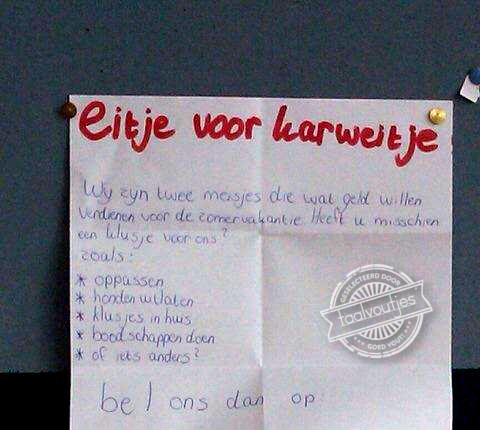 eitje voor karweitje
Wij zijn twee meisjes die wat geld willen
verdienen voor de zomervakantie. Heeft u misschien
een klusje voor ons?
zoals:
* oppassen
* honden uitlaten
* klusjes in huis
* boodschappen doen
* of iets anders?
bel ons dan op:
GESELECTEERD DOOR
taalvoutjes
GOED VOUT!